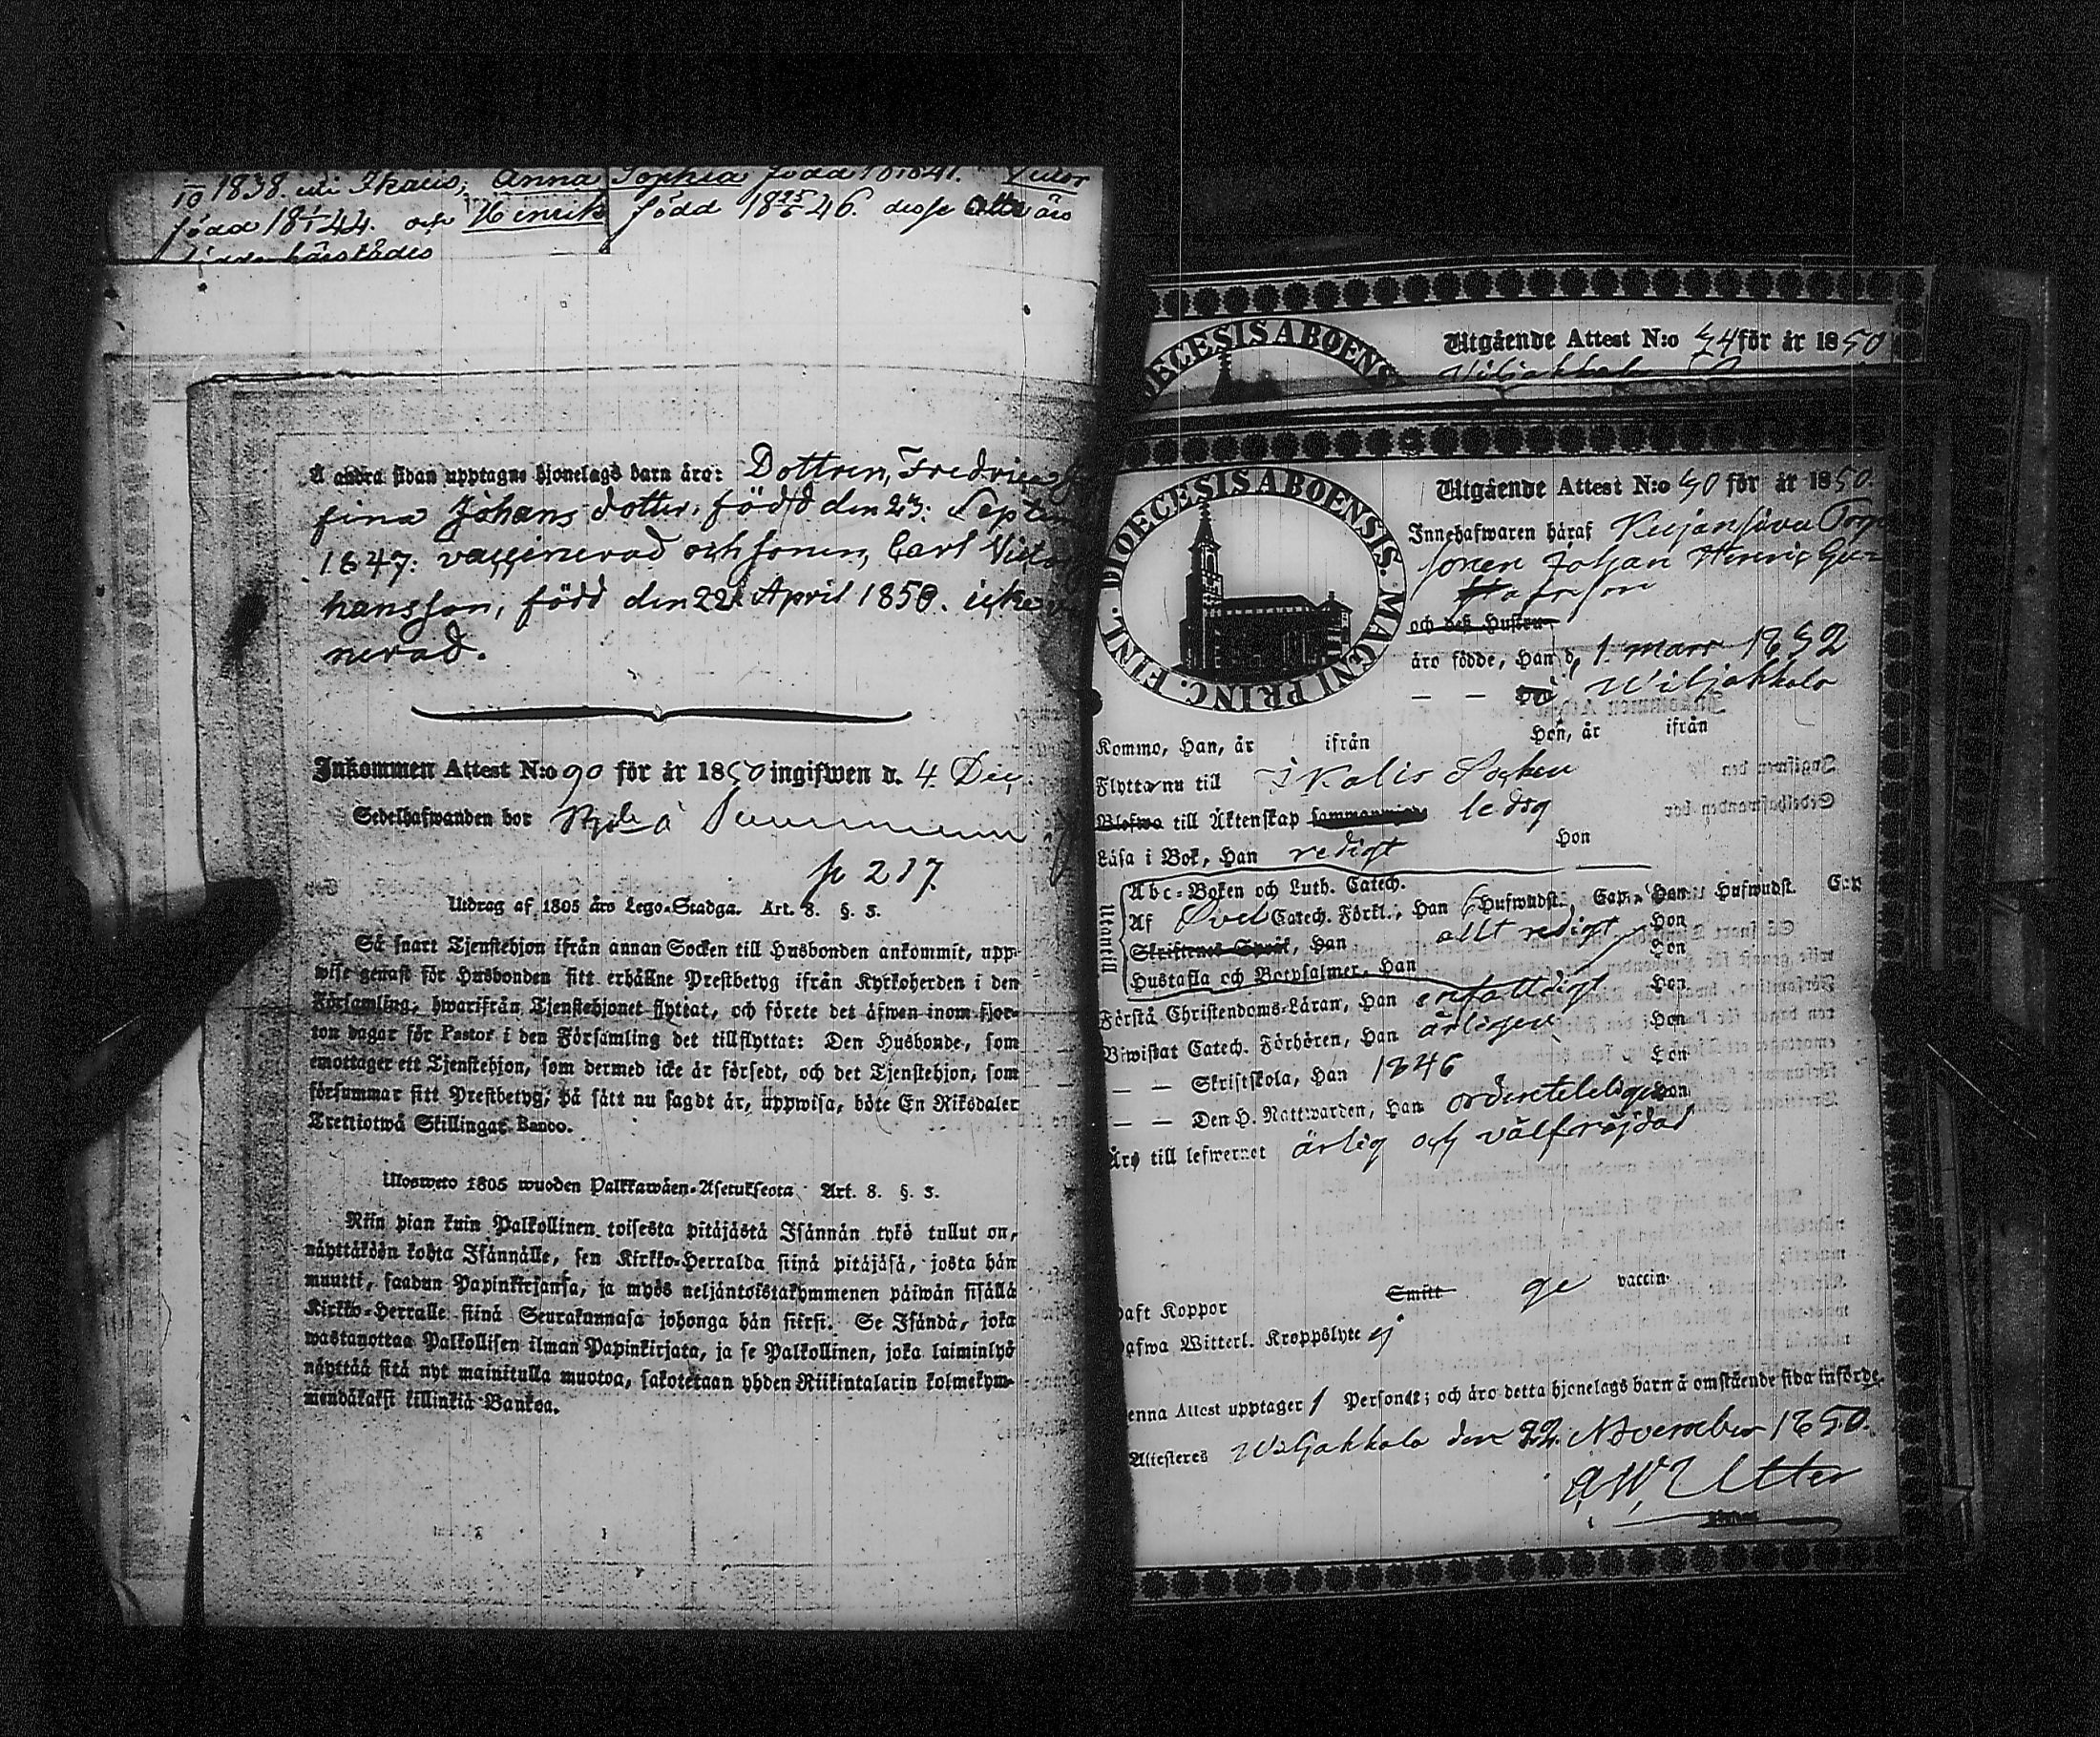 10 1838. uti Ikalis; Anna Sophia född 18 1841.
född 18 1/1 44. och Henrik född 18 25/6 46. desse äro
härstädes
Å andra sidan upptagne hjonelags barn äro: Dottren, Fredrica
fina Johans dotter, född den 23: Septem
1847: vaccinerad och sonen, Carl Victo
hansson, född den 22 April 1850. icke
nerad.
Inkommen Attest N:o 90 för år 1850 ingifwen d. 4 Dec.
Sedelhafwanden bor
p 217.
Utdrag af 1805 års Lego-Stadga. Art. 8. §. 3.
Så snart Tjenstehjon ifrån annan Socken till Husbonden ankommit, upp-
wise genast för Husbonden sitt erhållne Prestbetyg ifrån Kyrkoherden i den
Församling, hwarifrån Tjenstehjonet flyttat, och förete det äfwen inom fjor-
ton dagar för Pastor i den Församling det tillflyttat: Den Husbonde, som
emottager ett Tjenstehjon, som dermed icke är försedt, och det Tjenstehjon, som
försummar sitt Prestbetyg, på sätt nu sagdt är, uppwisa, böte En Riksdaler
Trettiotwå Skillingar Banco.
Ulosweto 1805 wuoden Palkkawäen-Asetuksesta Art. 8. §. 3.
Niin pian kuin Palkollinen toisesta pitäjästä Isännän tykö tullut on,
näyttäköön kohta Isännälle, sen Kirkko-Herralda siinä pitäjäsä, josta hän
muutti, saadun Papinkirjansa, ja myös neljäntoistakymmenen päiwän sisällä
Kirkko-Herralle siinä Seurakunnasa johonga hän siirsi. Se Isändä, joka
wastanottaa Palkollisen ilman Papinkirjata, ja se Palkollinen, joka laiminlyö
näyttää sitä nyt mainitulla muotoa, sakotetaan yhden Riikintalarin kolmekym-
mendäkaksi killinkiä Bankoa.
DIOECESIS ABOENS.
Utgående Attest N:o 54 för år 1850
Wiljakkala
FINL. DIOECESIS ABOENSIS. MAGNI PRINC.
Utgående Attest N:o 50 för år 1850.
Innehafwaren häraf Torp
sonen Johan Henric Gu-
stafsson
och deß Hustru
äro födde, Han d. 1. mars 1832
— — i Wiljakkala
Komme, Han, år ifrån Hon, år ifrån
Flyttar nu till Ikalis Socken
Blefwe till Äktenskap ledig
Läsa i Bok, Han redigt Hon
Utantill
Abc-Boken och Luth. Catech.
Af Catech. Förkl., Han 6 Hufwudst. Cap. Hufwudst. Cap
Skriftenes Språk, Han allt redigt Hon
Hustafla och Botpsalmer, Han Hon
Förstå Christendoms-Läran, Han enfaldigt Hon
Biwistat Catech. Förhören, Han årligen Hon
— — Skriftskola, Han 1846 Hon
— — Den H. Nattwarden, Han ordenteligen Hon
Äro till lefwernet ärlig och välfrejdad
Haft Koppor Smitt ge vaccin.
Hafwa Witterl. Kroppslyte ej
Denna Attest upptager 1 Persone; och äro detta hjonelags barn å omstående sida införde.
Attesteres Wiljakkala den 22. November 1850.
G. W. Utter